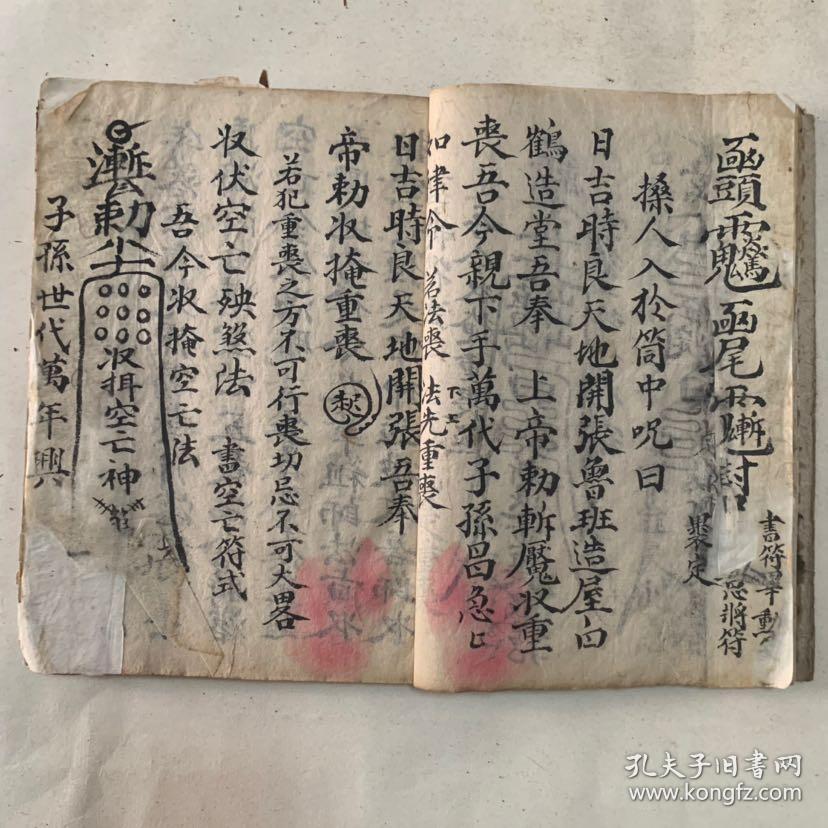 書符畢
急將符
操人入於筒中呪曰
日吉時良天地開張魯班造屋白
鶴造堂吾奉 上帝勅斬魘収重
喪吾今親下手萬代子孫昌急口
如律令 法先重喪
日吉時良天地開張吾奉
帝勅収掩重喪
若犯重喪之方不可行喪切忌不可大畧
収伏空亡殃煞法 書空亡符式
吾今収掩空亡法
勅
収 空亡神
子孫世代萬年興
孔夫子旧书网
www.kongfz.com